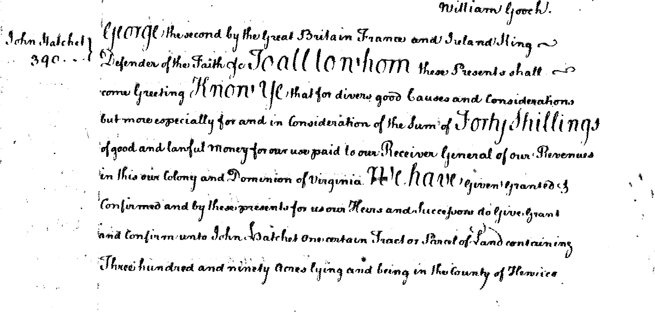 William Gooch.
John Hatchet
390...
George the second by the Great Britain France and Ireland King
Defender of the Faith &c To all to whom these Presents shall
come Greeting Know Ye that for divers good Causes and Considerations
but more especially for and in Consideration of the Sum of Forty Shillings
of good and lawful Money for our use paid to our Receiver General of our Revenues
in this our Colony and Dominion of Virginia We have Given Granted &
Confirmed and by these presents for us our Heirs and Successors do Give Grant
and Confirm unto John Hatchet one certain Tract or Parcel of Land containing
Three hundred and ninety Acres lying and being in the County of Henrico